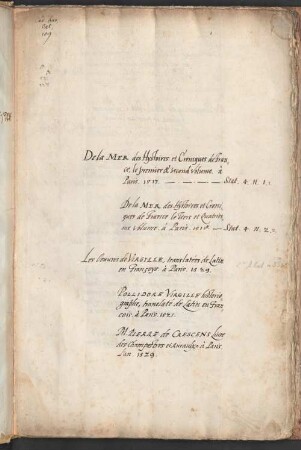 De la MER des Hystoires et Croniques de Fran
ce, le premier & second volume. à
Paris. 1517. — — — — Stat. 4. N. 1.
De la MER des Hystoires et Croni
ques de France le Tiers et Quatries
me volume. à Paris. 1518. — Stat. 4. N. 2.
Les Oeuures de VIRGILLE, translatées de Latin
en Françoys à Paris. 1529.
POLLIDORE VIRGILLE historio
graphe, translaté de Latin en Fran
cois. à Paris. 1521.
M. PIERRE de CRESCENS
des Champestres à Paris.
1529.